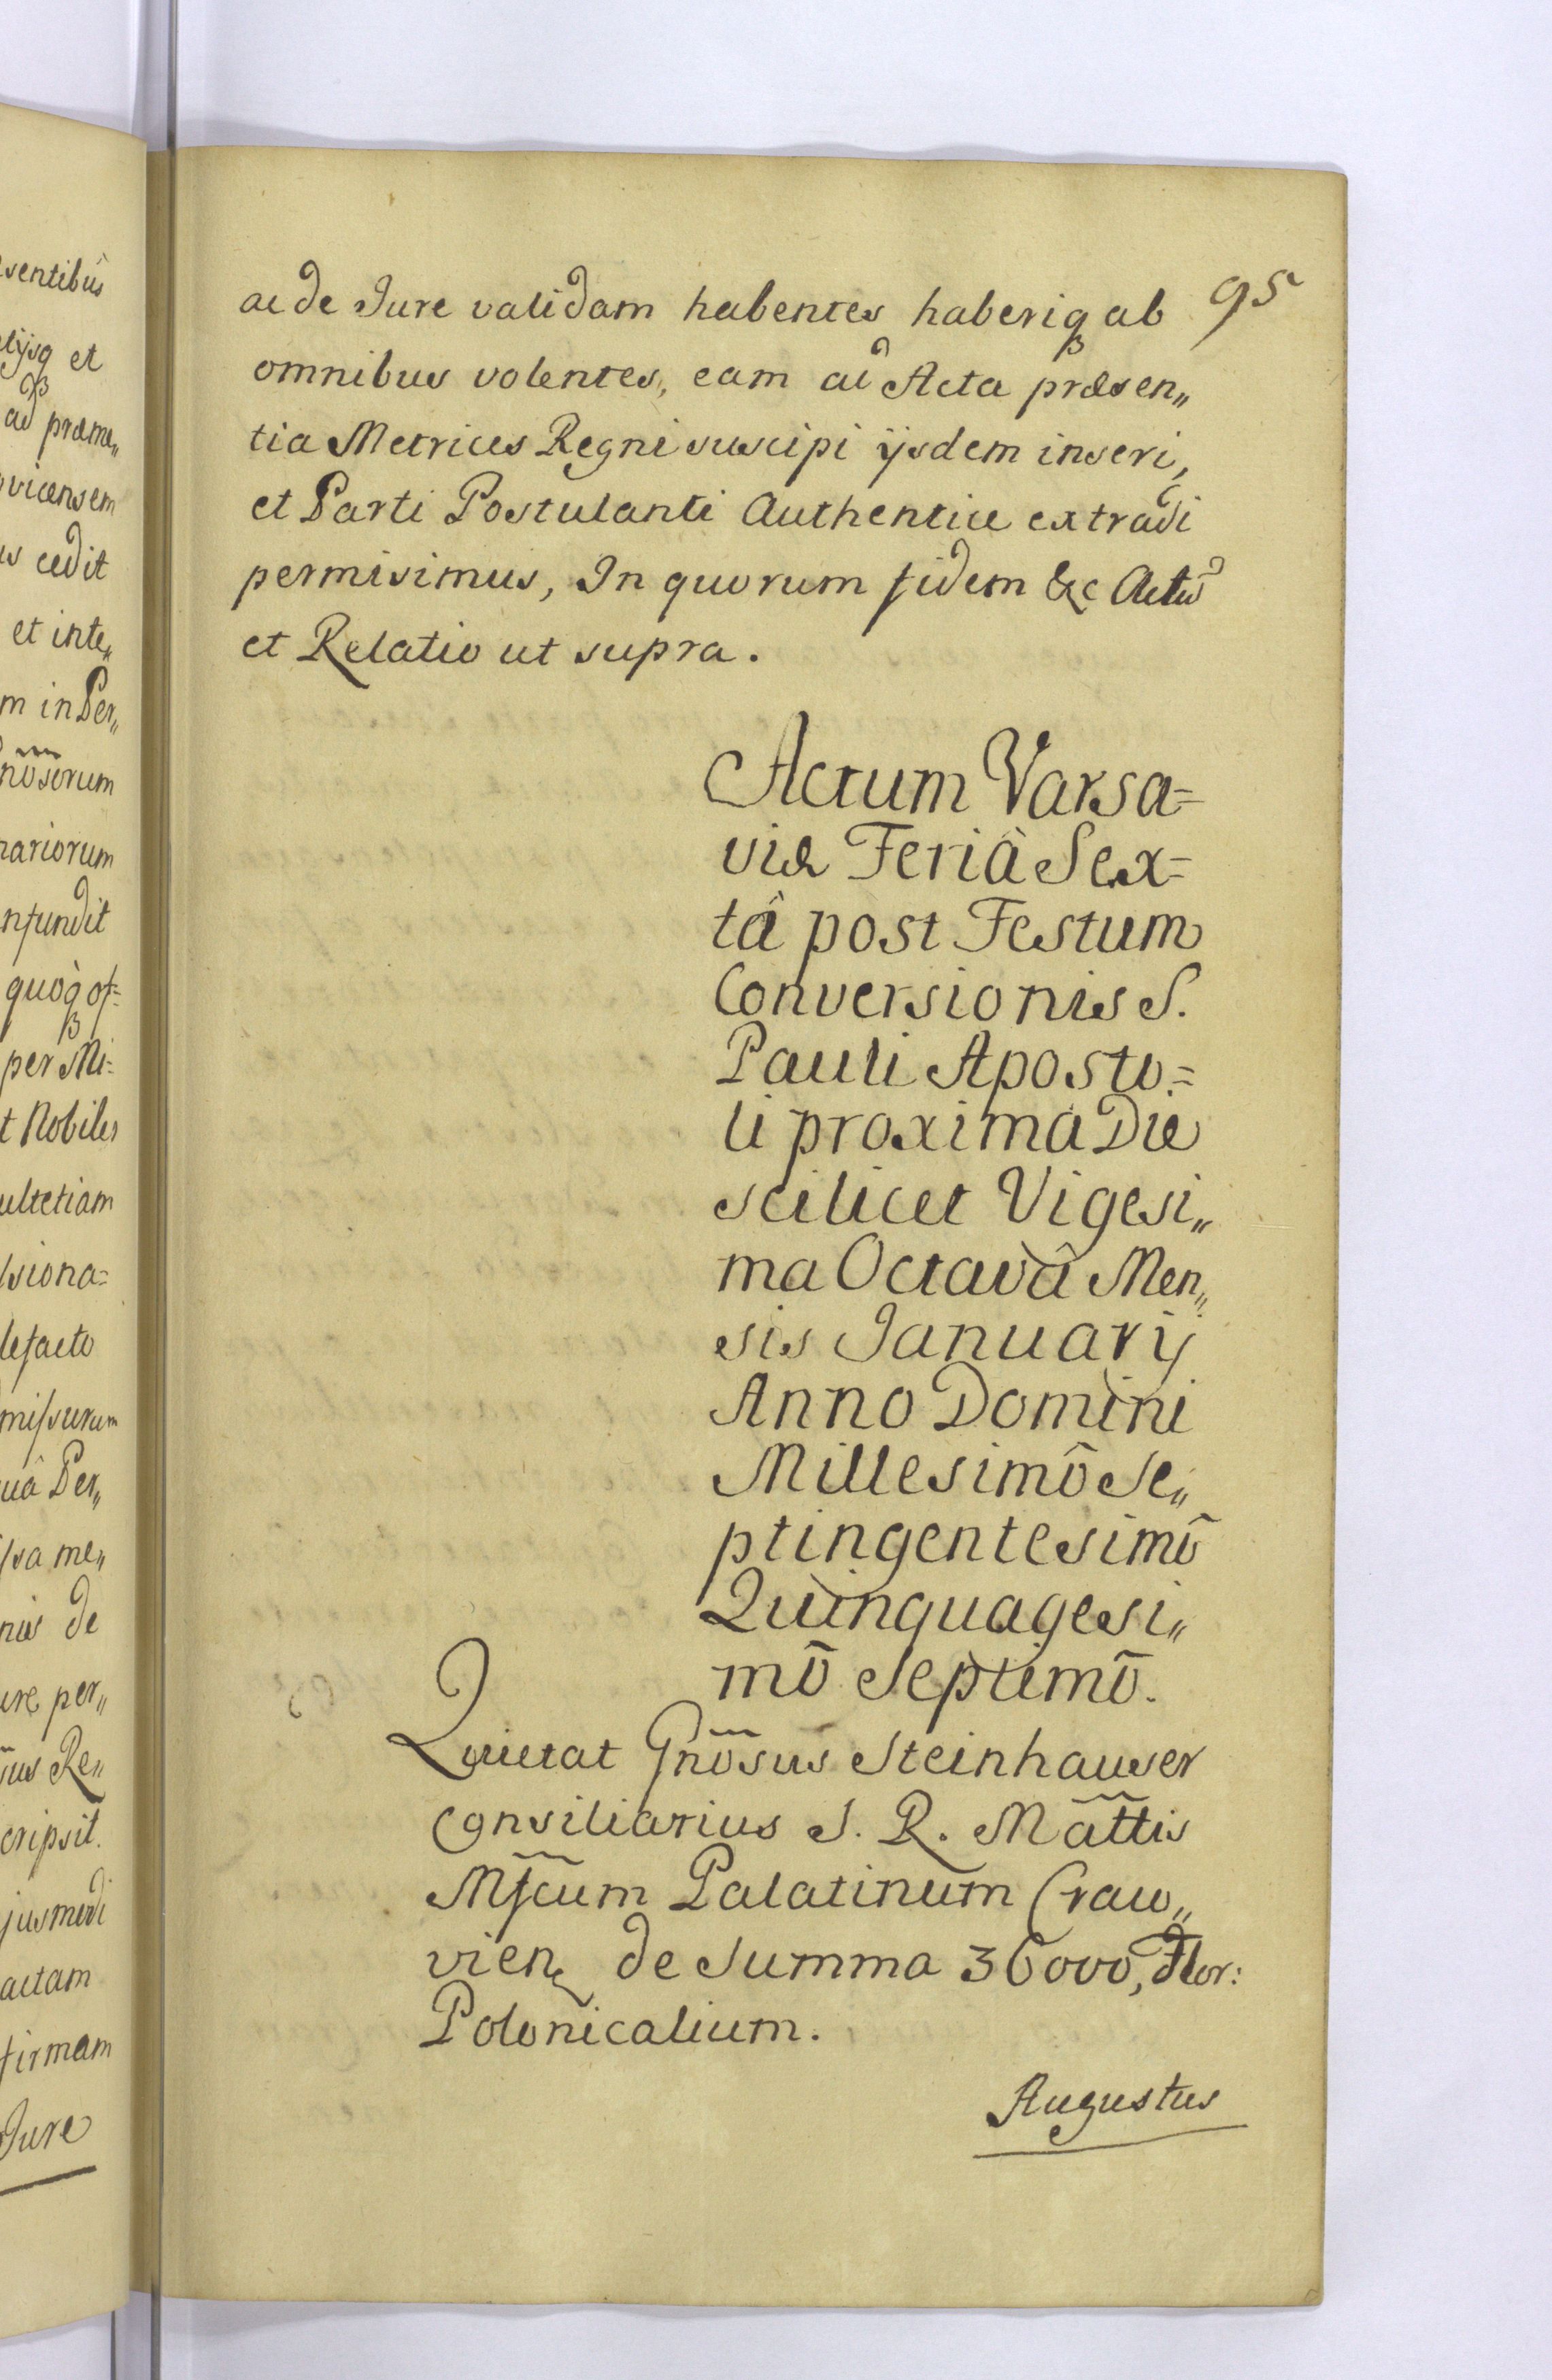 95
ac de Jure validam habentes haberiq ab
omnibus volentes, eam ad Acta præsen„
tia Metrices Regni suscipi ijsdem inseri,
et Parti Postulanti Authentice extradi
permisimus, In quorum fidem &c
et Relatio ut supra.
Actum Varsa=
viæ Feriâ Sex=
tâ post Festum
Conversionis S.
Pauli Aposto=
li proximâ Die
scilicet Vigesi„
ma Octavâ Men„
sis Januarij
Anno Domini
Millesimô Se„
ptingentesimô
Quinquagesi„
mô Septimô.
Quietat Gnõsus Steinhauser
Consiliarius S. R. Mattis
Mfcum Palatinum Craco„
vien de Summa 36000, Flor:
Polonicalium.
Augustus
sentibus
et
ad præme„
vicensem
cedit
et inte„
m in Per„
nosorum
nariorum
nfundit
quoq of=
per Mi=
t Nobiles
ultetiam
siona=
lefacto
missurum
uâ Per„
ssa me„
de
ure per„
Re„
cripsit.
jusmodi
actam
firmam
Jure